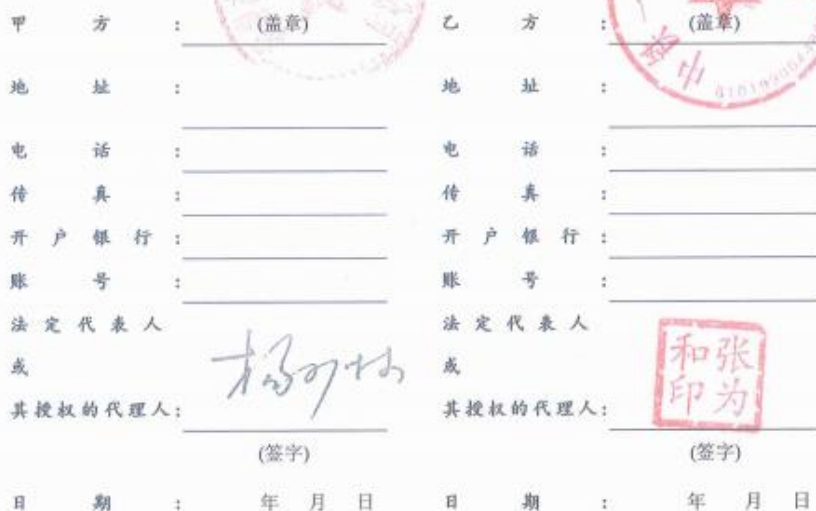 甲方： (盖章)
地址：
电话：
传真：
开户银行：
账号：
法定代表人
或
其授权的代理人：
(签字)
日期： 年 月 日
乙方： (盖章)
地址：
电话：
传真：
开户银行：
账号：
法定代表人
或
其授权的代理人：
张为和印
(签字)
日期： 年 月 日